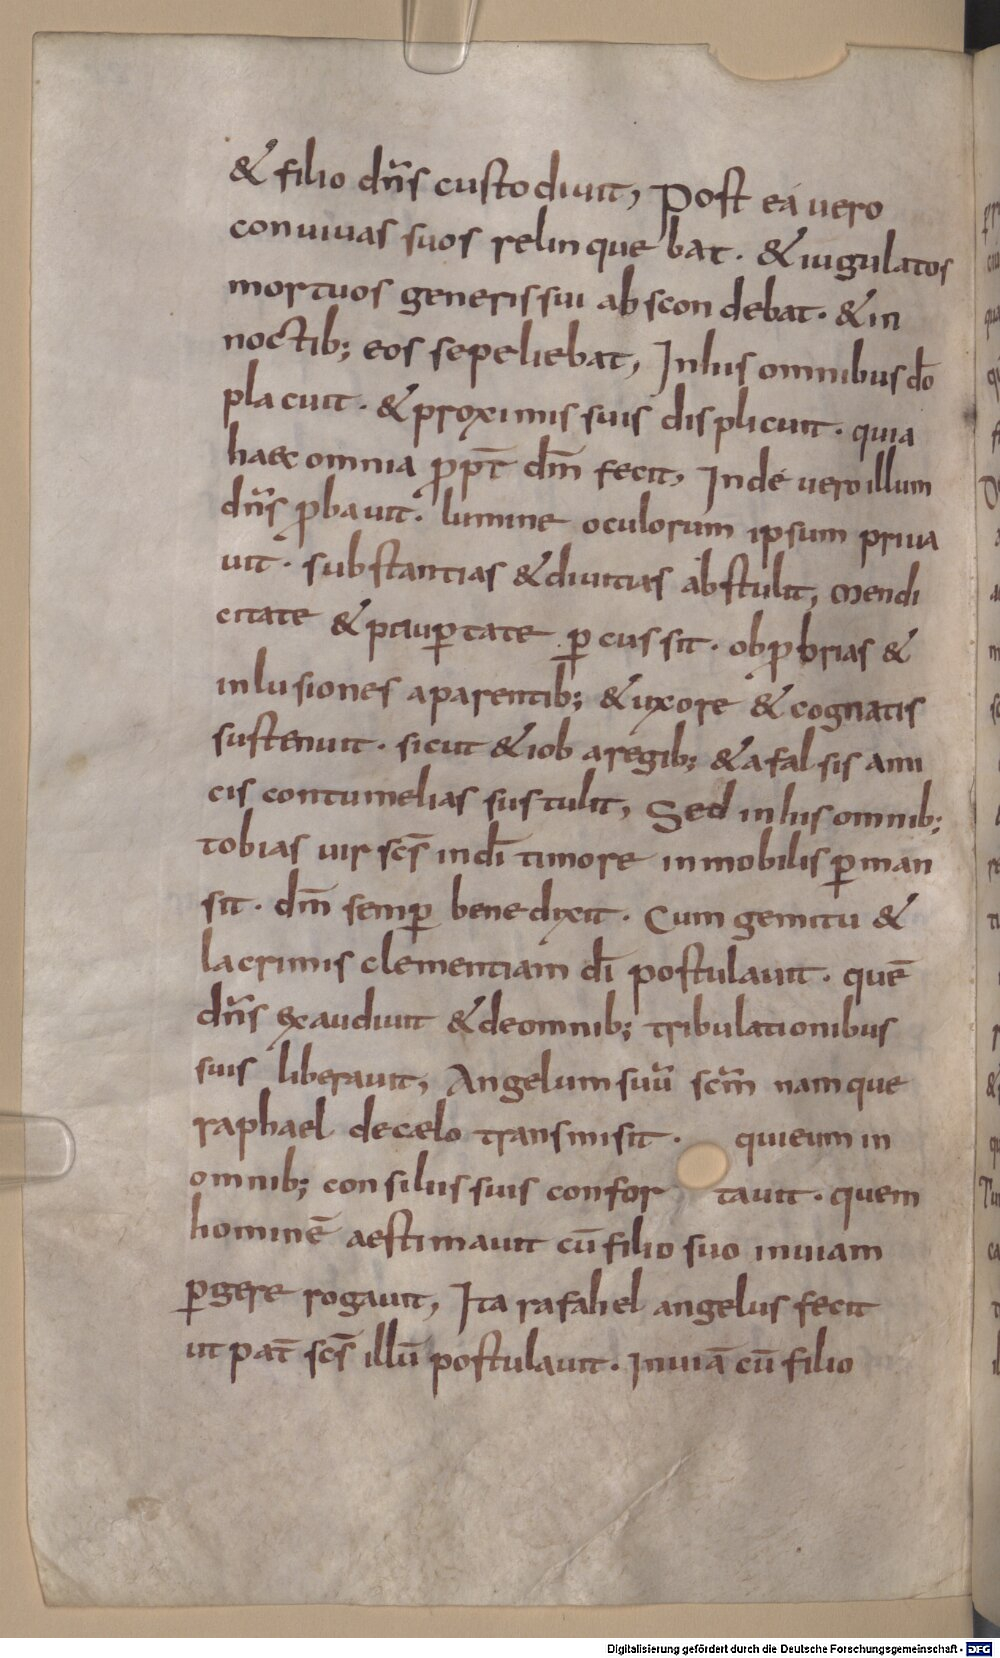 & filio dn̄s custodiuit, Post ea uero
conuiuas suos relinquebat. & iugulatos
mortuos generis sui abscondebat. & in
noctib; eos sepeliebat, Inhis omnibus dō
placuit. & proximis suis displicuit. quia
haec omnia ꝓpt̄ dm̄ fecit, Inde uero illum
dn̄s ꝓbauit. lumine oculorum ipsum priua
uit. substantias & diuitias abstulit, Mendi
citate & pauꝑtate ꝑcussit. obꝓbrias &
inlusiones aparentib; & uxore & cognatis
sustenuit. sicut & iob aregib; & afalsis ami
cis contumelias sustulit, Sed inhis omnib;
tobias uir sc̄s indī timore inmobilis ꝑman
sit. dm̄ semꝑ benedixit. Cum gemitu &
lacrimis clementiam dī postulauit. quē
dn̄s exaudiuit & deomnib; tribulationibus
suis liberauit, Angelum suū sc̄m namque
raphael decaelo transmisit. quieum in
omnib; consiliis suis confortauit. quem
hominē aestimauit cū filio suo inuiam
ꝑgere rogauit, Ita rafahel angelus fecit
ut pat̄ sc̄s illū postulauit. Inuiā cū filio
Digitalisierung gefördert durch die Deutsche Forschungsgemeinschaft - DFG